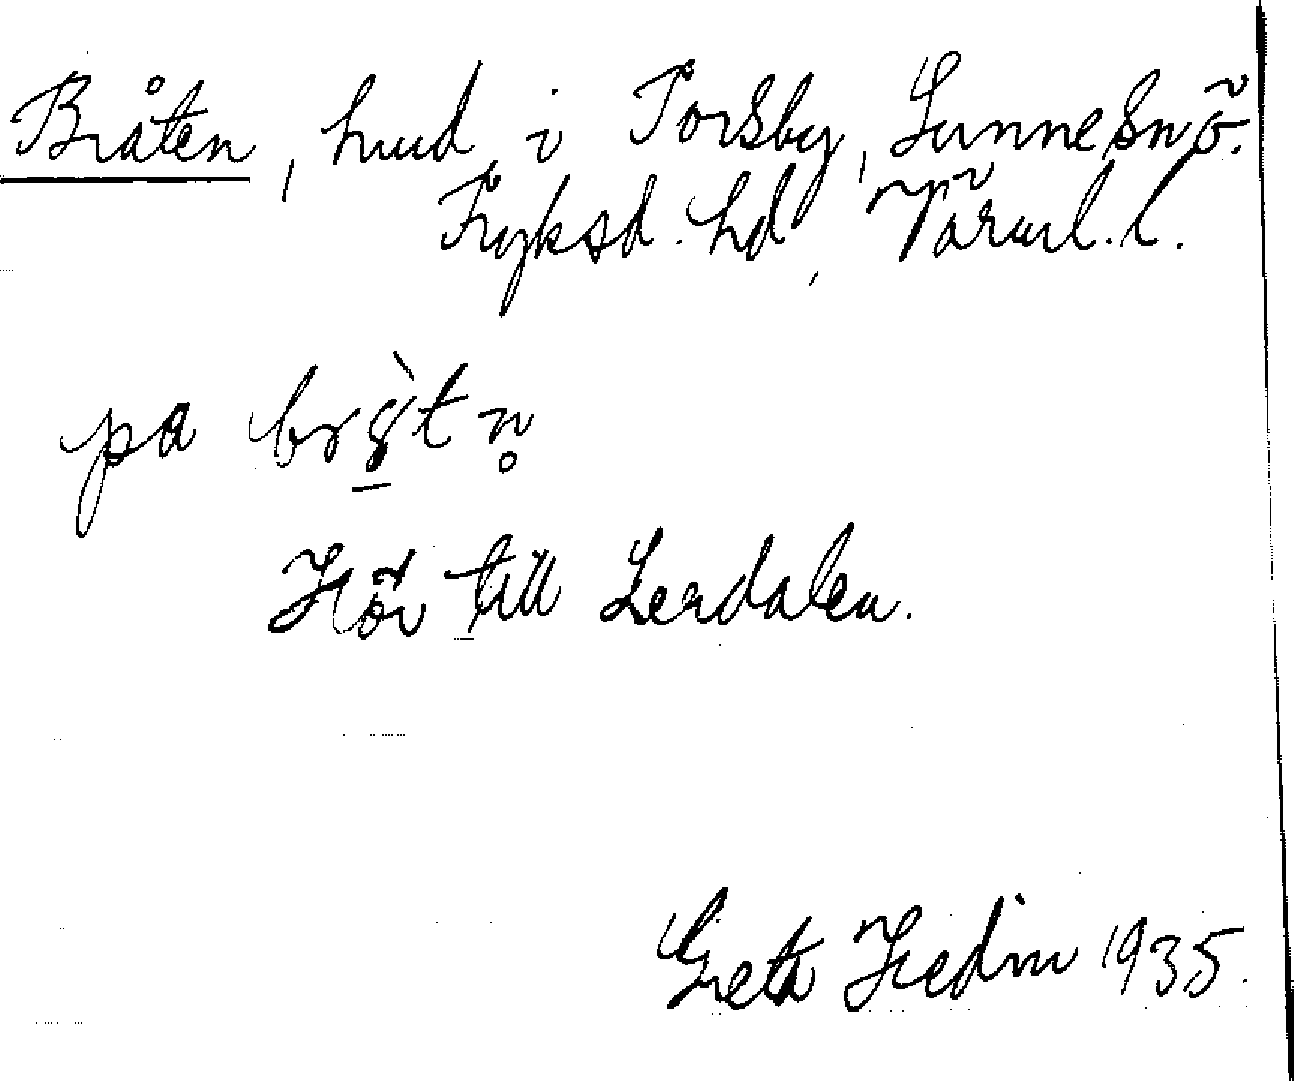 Bråten, hmd i Torsby, Sunne sn ö.
Fryksd. hd, Värml. l.
pa
Hör till Lerdalen.
Greta Hedin 1935.